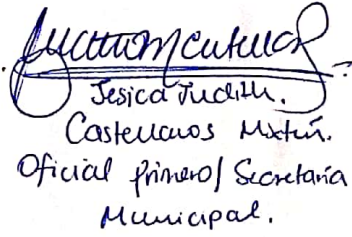 Jesica Judith.
Castellanos Mixtún.
Oficial primero/ Secretaria
Municipal.